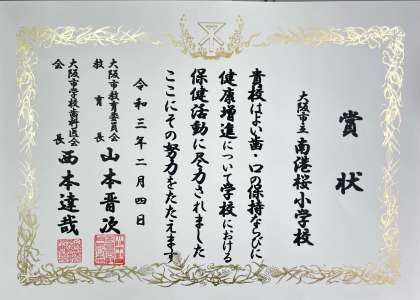 賞状
大阪市立 南港桜小学校
貴校はよい歯・口の保持ならびに
健康増進について学校における
保健活動に尽力されました
ここにその努力をたたえます
令和三年二月四日
大阪市教育委員会
教育長 山本晋次
大阪市学校歯科医会
会長 西本達哉